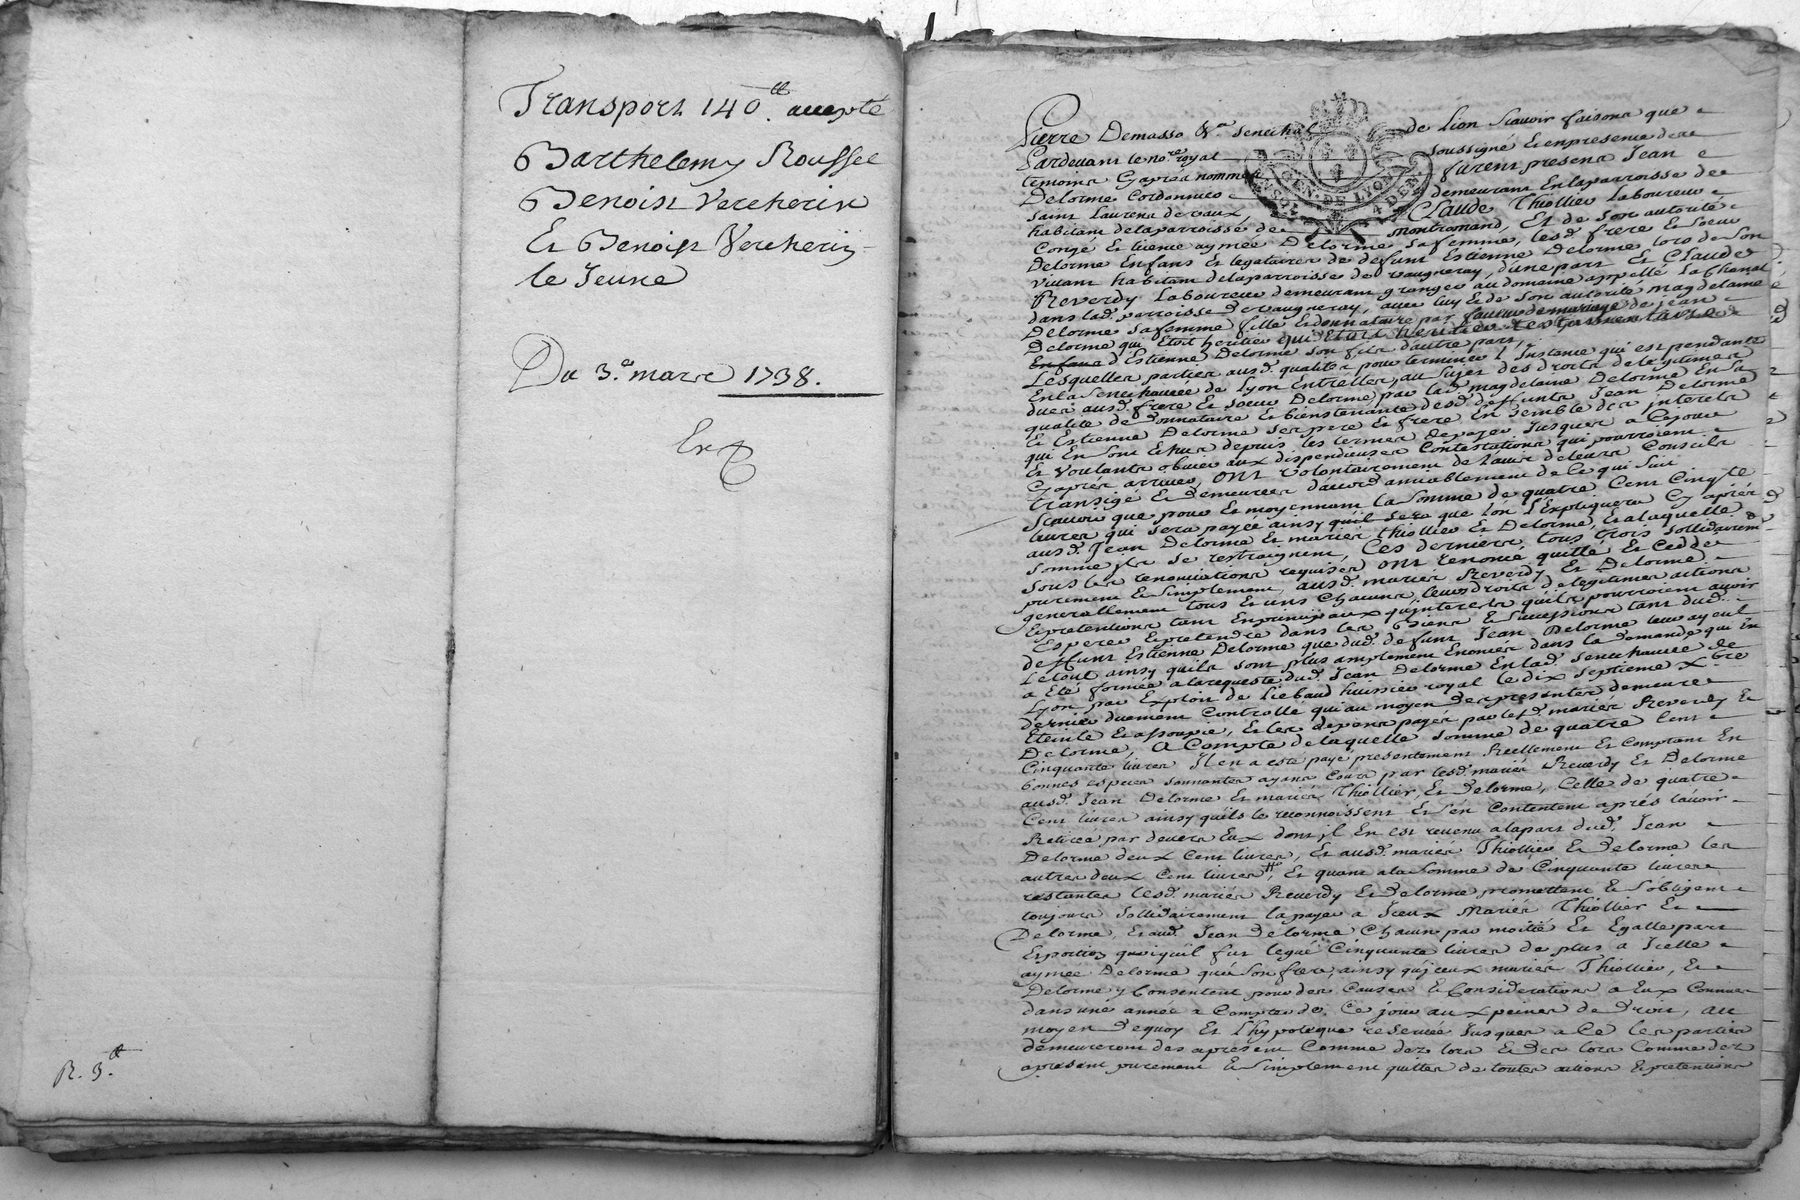 Transport 140.tt accepté
Barthelemy Roussel
Benoist Vercherin
Et Benoist Vercherin
le Jeune
Du 3.e mars 1738.
Ex
R. 3.tt
Pierre Demasso &a senechal de Lion scavoir faisons que
Pardevant le nore royal soussigné et en presence des
temoins cyaprés nommés furent presens Jean
Delorme Cordonnier demeurant en la parroisse de
saint Laurens de vaux, Claude Thiollier Laboureur
habitant de la parroisse de montromand, Et de son autorité
Congé Et licence aymée Delorme sa femme, lesd. frere Et soeur
Delorme Enfans Et legataires de defunt Estienne Delorme lors de son
vivant habitant de la parroisse de vaugneray, d'une part Et Claude
Reverdy Laboureur demeurant granger au domaine appellé La Chenal
dans lad. parroisse de vaugneray, avec luy Et de son autorité magdelaine
Delorme sa femme fille Et donnataire par faveur de mariage de jean
Delorme qui Etoit heritier qui Etoit heritier testamentaire
En fans d'Estienne Delorme son fils d'autre part,
Lesquelles parties ausd. qualités pour terminer l'Instance qui est pendante
En la senechaucée de Lyon Entr'elles, au sujet des droits de legitimes
dues ausd. frere Et soeur Delorme par lad. magdelaine Delorme En sa
qualité de donnataire Et bientenante desd. deffunts Jean Delorme
Et Estienne Delorme ses pere Et frere En semble des interets
qui En sont Echus depuis les termes de payer jusques a cejour
Et voulants obvier aux dispendieuses Contestations qui pourroient
Cyaprés arriver, ont volontairement de l'avis de leurs Conseils
transigé Et demeurés d'accord amiablement de Ce qui suit
scavoir que pour Et moyennant la somme de quatre Cent Cinqte
livres qui sera payée ainsy qu'il sera que lon l'Expliquera Cy aprés
ausd. Jean Delorme Et mariés Thiollier Et Delorme, Et a laquelle
somme ils se restraignent, Ces derniers tous trois sollidairemt
sous les renonciations requises ont renoncé quitté Et Ceddé
purement Et simplement, ausd. mariés Reverdy Et Delorme
generallement tous Et uns Chacuns leurs droits de legitimes actions
Et pretentions tant En principaux qu'interets qu'ils pourroient avoir
Esperer Et pretendre dans les Biens Et successions tant dud.
deffunt Estienne Delorme que dud. defunt Jean Delorme leur ayeul
Le tout ainsy qu'ils sont plus amplement Enoncés dans la demande qui En
a Eté formée a la requeste dud. Jean Delorme En lad. senechaucée de
Lyon par Exploit de Liebaud huissier royal le dix septieme xbre
dernier duement Controllé qui au moyen des presentes demeure
Eteinte Et assoupie, Et les depens payés par lesd. mariés Reverdy Et
Delorme, A Compte de laquelle somme de quatre Cent
Cinquante livres Il en a esté payé presentement Reellement Et Comptant En
bonnes especes sonnantes ayans Cours par lesd. mariés Reverdy Et Delorme
ausd. Jean Delorme Et mariés Thiollier, Et Delorme, Celle de quatre
Cent livres ainsy quils le reconnoissent Et s'en Contentent aprés lavoir
Retirée par devers Eux dont il En est revenu a la part dud. Jean
Delorme deux Cent livres, Et ausd. mariés Thiollier Et Delorme les
autres deux Cent livres, Et quant a la somme de Cinquante livres
restantes lesd. mariés Reverdy Et Delorme promettent Et s'obligent
toujours sollidairement la payer a Iceux Mariés Thiollier Et
Delorme, Et aud. Jean Delorme Chacun par moitié Et Egalle part
Et portion quoiqu'il fut legué Cinquante livres de plus a Icelle
aymée Delorme qu'a son frere, ainsy qu'iceux mariés Thiollier, Et
Delorme y Consentent pour des Causes Et Considerations a Eux Connues
dans une année a Compter de Ce jour aux peines de droit, au
moyen de quoy Et l'hypoteque reservée Jusques a Ce les parties
demeureront des apresent Comme dez lors Et des lors Comme dez
apresent purement Et simplement quittes de toutes actions Et pretentions